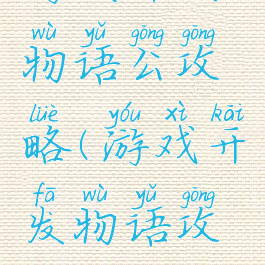 wù yǔ gōng gōng
物语公攻
lüè yóu xì kāi
略(游戏开
fā wù yǔ gōng
发物语攻